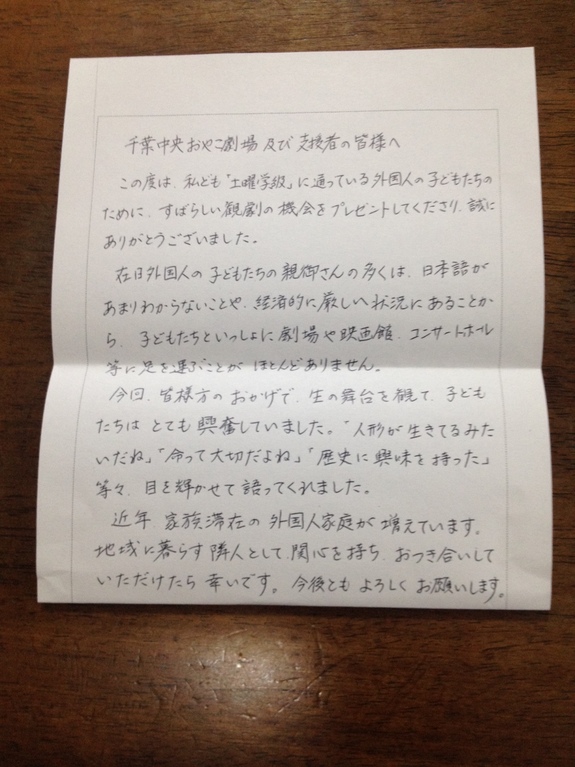 千葉中央おやこ劇場及び支援者の皆様へ
この度は、私ども「土曜学級」に通っている外国人の子どもたちの
ために、すばらしい観劇の機会をプレゼントしてくださり、誠に
ありがとうございました。
在日外国人の子どもたちの親御さんの多くは、日本語が
あまりわからないことや、経済的に厳しい状況にあることか
ら、子どもたちといっしょに劇場や映画館、コンサートホール
等に足を運ぶことがほとんどありません。
今回、皆様方のおかげで、生の舞台を観て、子ども
たちはとても興奮していました。「人形が生きてるみた
いだね」「冷って大切だよね」「歴史に興味を持った」
等々、目を輝かせて語ってくれました。
近年、家族滞在の外国人家庭が増えています。
地域に暮らす隣人として、関心を持ち、おつき合いして
いただけたら幸いです。今後ともよろしくお願いします。